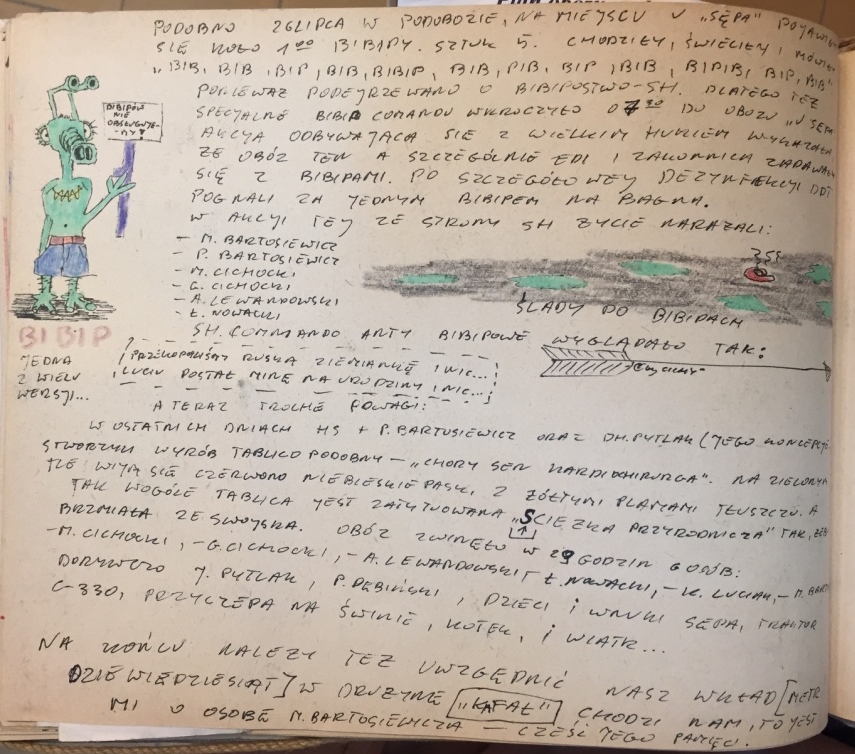 PODOBNO 26 LIPCA W PODOBOZIE, NA MIEJSCU U "SĘPA"
SIĘ KOŁO 1⁰⁰ BIBIPY. SZTUK 5. CHODZIŁY, ŚWIECIŁY I
"BIB, BIB, BIP, BIB, BIBIP, BIB, PIB, BIP, BIB, BIPIBI, BIP, BIB"
PONIEWAŻ PODEJRZEWANO O BIBIPOSTWO-SH. DLATEGO TEŻ
SPECJALNE BIBIP COMANDO WKROCZYŁO O 7³⁰ DO OBOZU "U SĘPA
AKCJA ODBYWAJĄCA SIĘ Z WIELKIM HUKIEM WYKAZAŁA
ŻE OBÓZ TEN A SZCZEGÓLNIE EDI I ZADAWAŁ
SIĘ Z BIBIPAMI. PO SZCZEGÓŁOWEJ DEZYNFEKCJI DDT
POGNALI ZA JEDNYM BIBIPEM NA BAGNA.
W AKCJI TEJ ZE STRONY SH ŻYCIE NARAŻALI:
- M. BARTOSIEWICZ
- P. BARTOSIEWICZ
- M. CICHOCKI
- G. CICHOCKI
- A. LEWANDOWSKI
- Ł. NOWACKI
SH. COMMANDO ANTY BIBIPOWE
BIBIPÓW
NIE
OBSŁUGUJE-
MY!
BIBIP
JEDNA
Z WIELU
WERSJI...
ŚLADY PO BIBIPACH
WYGLĄDAŁO TAK:
PRZEKOPALIŚMY RUSKĄ ZIEMIANKĘ I NIC...
LUCIU POSTAŁ MINĘ NA URODZINY I NIC...
A TERAZ TROCHĘ POWAGI:
W OSTATNICH DNIACH HS + P. BARTOSIEWICZ ORAZ DH. PYTLAK (JEGO KONCEPCJA
STWORZYLI WYRÓB TABLICO PODOBNY - "CHORY SEN KARDIOCHIRURGA". NA ZIELONYM
TLE WIJĄ SIĘ CZERWONO NIEBIESKIE PASKI, Z ŻÓŁTYMI PLAMAMI TŁUSZCZU. A
TAK WOGÓLE TABLICA JEST ZATYTUOWANA "SCIEŻKA PRZYRODNICZA" TAK, ŻEBY
BRZMIAŁA ZE SWOJSKA. OBÓZ ZWINĘŁO W 29 GODZIN 6 OSÓB:
- M. CICHOCKI, - G. CICHOCKI, - A. LEWANDOWSKI, Ł. NOWACKI, - K. LUCIAK, - M. BART
DORYWCZO J. PYTLAK, P. DĘBIŃSKI, DZIECI I WNUKI SĘPA, TRAKTOR
C-330, PRZYCZEPA NA ŚWINIE, KOTEK, I WIATR...
NA KOŃCU NALEŻY TEŻ UWZGĘDNIĆ NASZ WKŁAD [METR
DZIEWIĘDZIESIĄT] W DRUŻYNĘ "KAFAŁ" CHODZI NAM, TO JEST
MI O OSOBĘ M. BARTOSIEWICZA - CZEŚĆ JEGO PAMIĘCI.